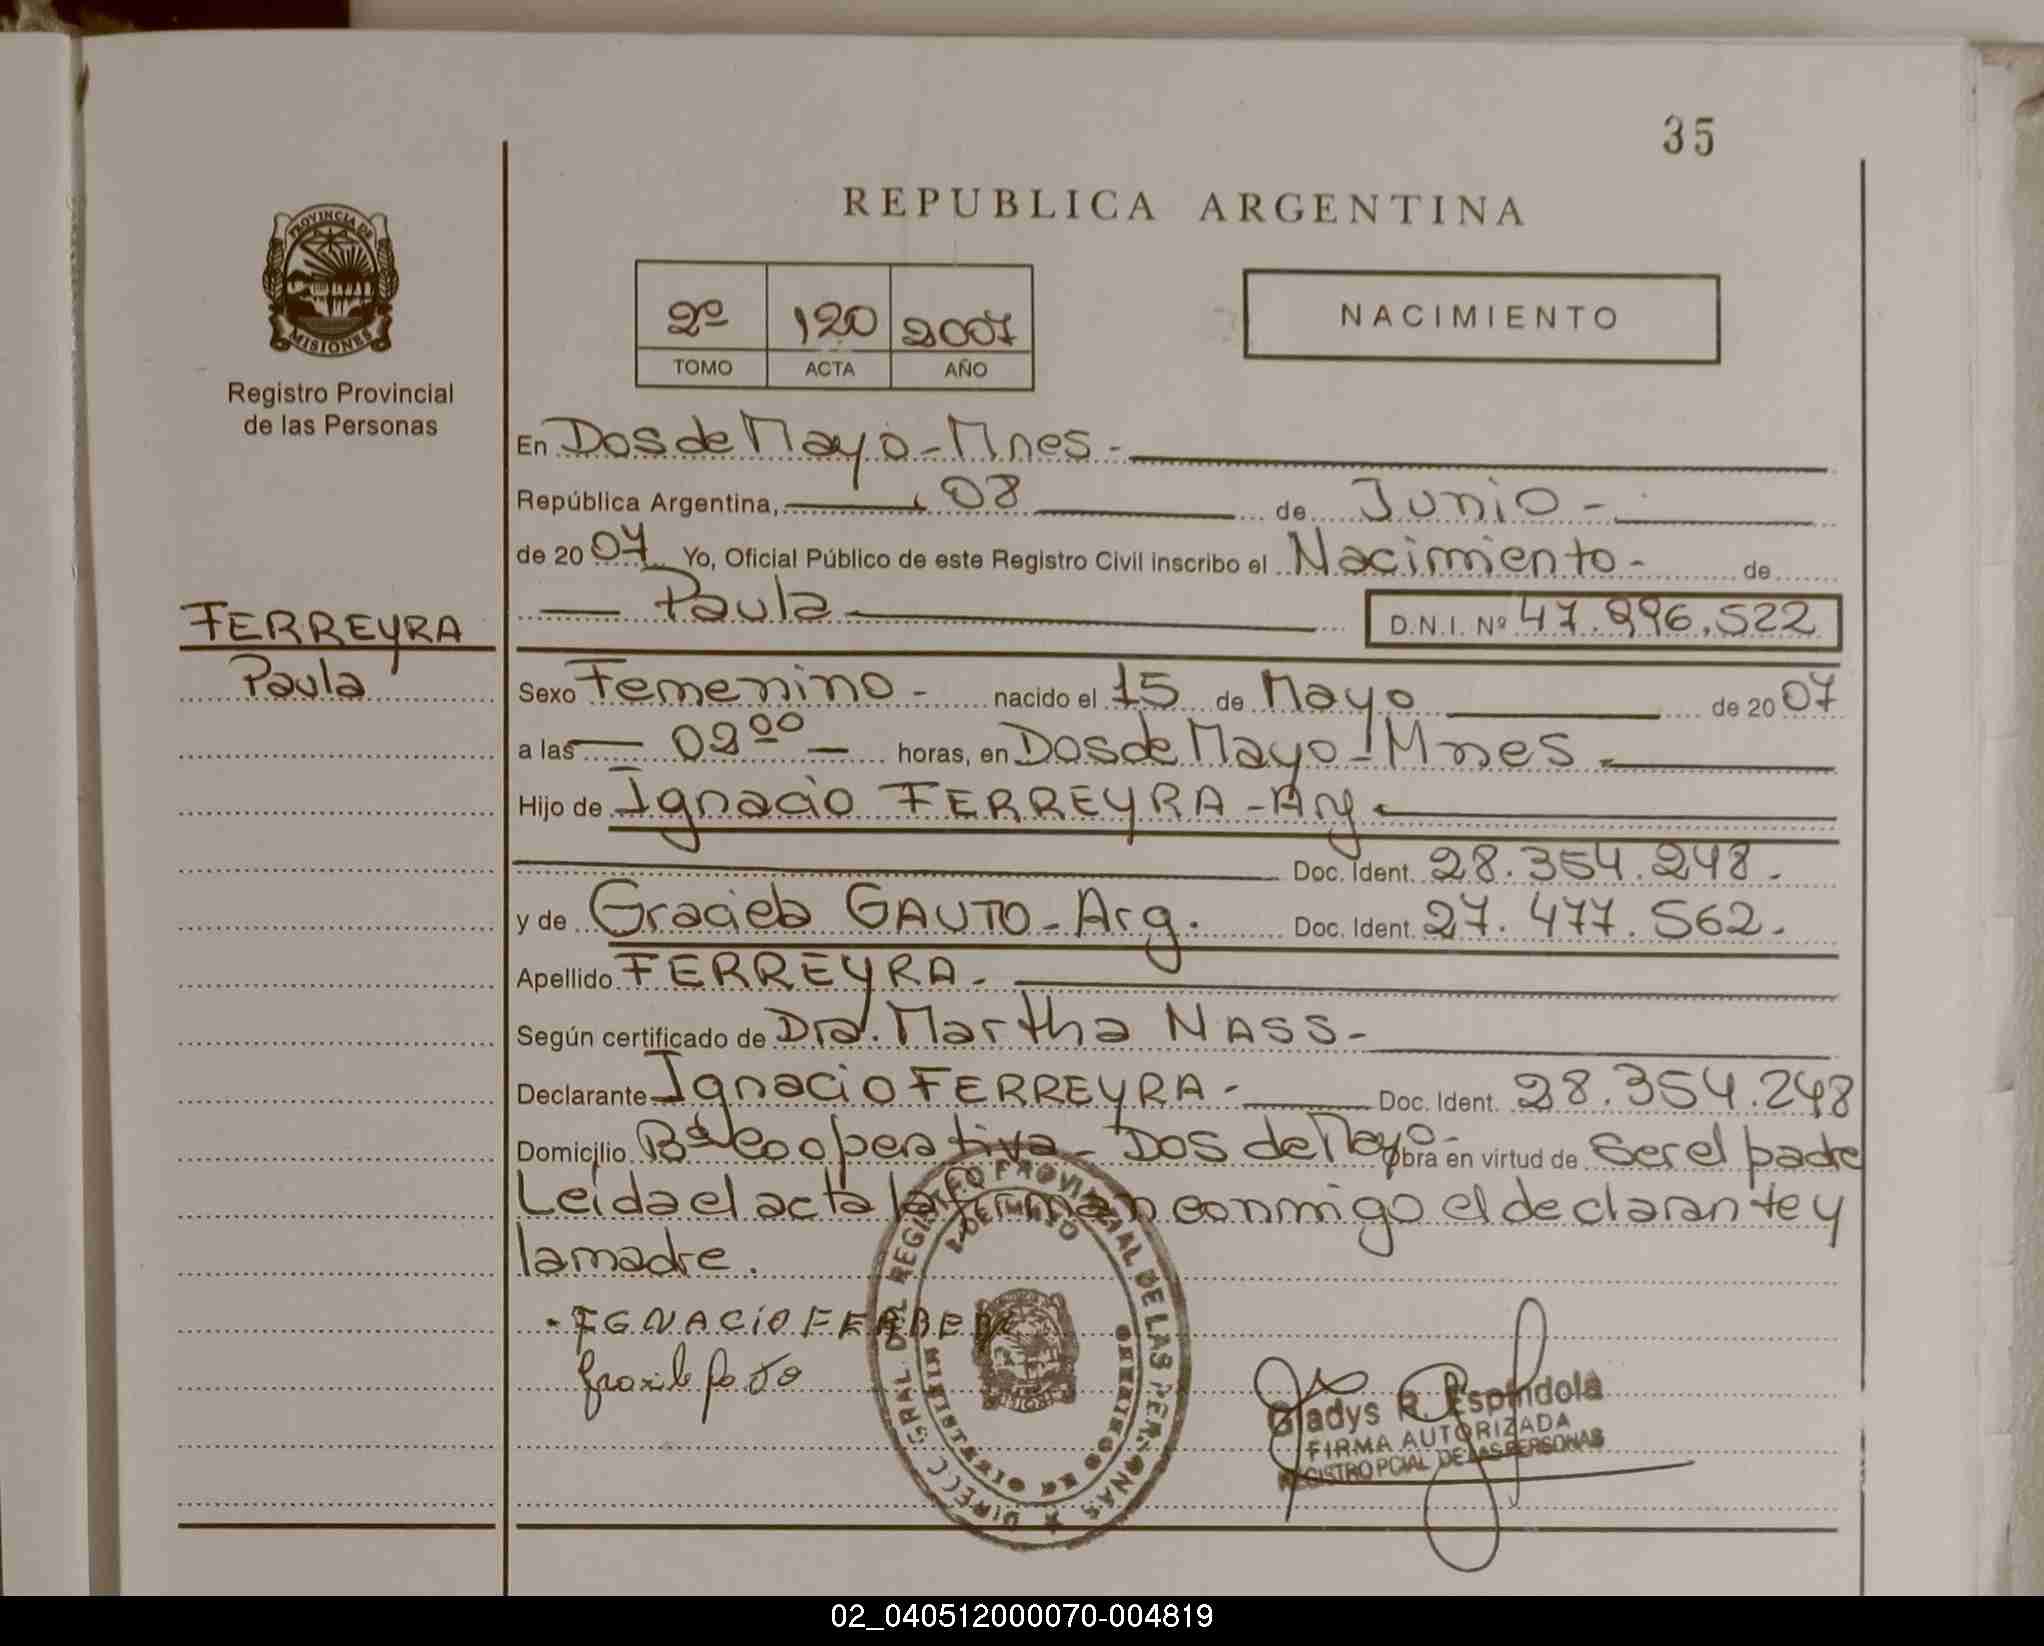 35
REPUBLICA ARGENTINA
PROVINCIA DE
MISIONES
Registro Provincial
de las Personas
2º 120 2007
TOMO ACTA AÑO
NACIMIENTO
En Dos de Mayo - Mnes -
República Argentina, 08 de Junio -
de 20 07 Yo, Oficial Público de este Registro Civil inscribo el Nacimiento - de
Paula D.N.I. Nº 47.996.522
FERREYRA
Paula
Sexo Femenino - nacido el 15 de Mayo de 20 07
a las 02⁰⁰ horas, en Dos de Mayo - Mnes -
Hijo de Ignacio FERREYRA - Arg -
Doc. Ident. 28.354.248.
y de Graciela GAUTO - Arg. Doc. Ident. 27.477.562.
Apellido FERREYRA -
Según certificado de Dra. Martha NASS -
Declarante Ignacio FERREYRA - Doc. Ident. 28.354.248
Domicilio Bº Cooperativa - Dos de Mayo - obra en virtud de ser el padre
Leída el acta la firman conmigo el declarante y
la madre.
IGNACIO
DIRECC. GRAL. DEL REGISTRO PROVINCIAL DE LAS PERSONAS
2 DE MAYO
MISIONES
Gladys R. Espíndola
FIRMA AUTORIZADA
REGISTRO PCIAL DE LAS PERSONAS
02_040512000070-004819